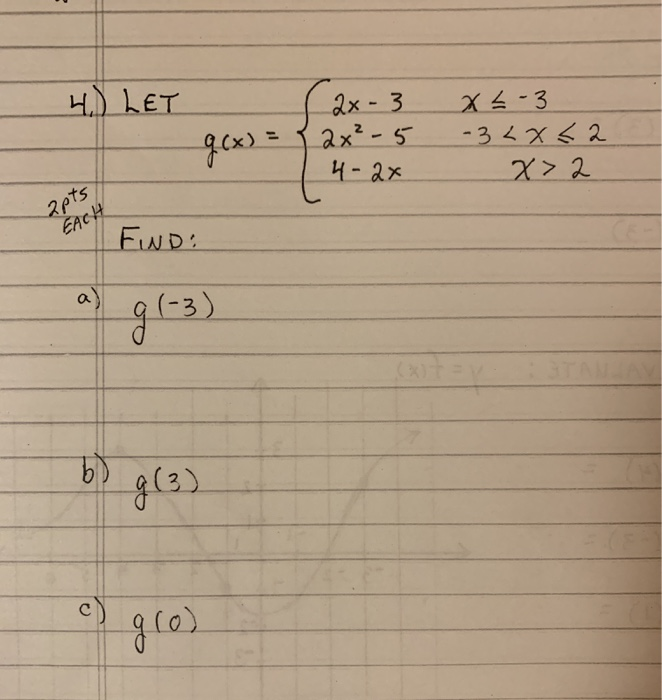 4.) LET
g(x) = { 2x - 3 x ≤ -3
2x² - 5 -3 < x ≤ 2
4 - 2x x > 2
2pts
EACH
FIND:
a) g(-3)
b) g(3)
c) g(0)